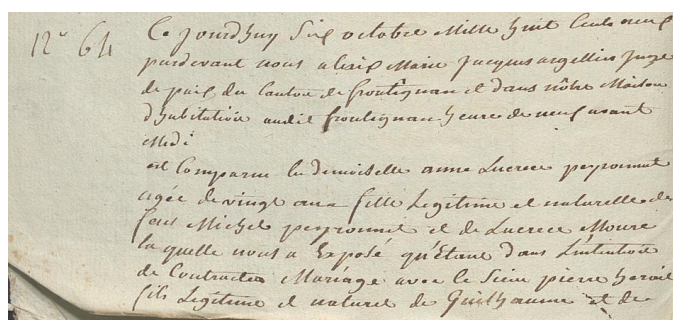 N° 64
Ce jourdhuy six octobre Mille huit Cents neuf
pardevant nous alexis Marie jacques argellies juge
de paix du Canton de frontignan et dans nôtre Maison
d'habitation audit frontignan heure de neuf avant
Midi
est Comparue la demoiselle anne Lucrece peyronnet
agée de vingt ans fille Legitime et naturelle de
feus Michel peyronnet et de Lucrece Moure
la quelle nous a Exposé qu'Etant dans L'intention
de Contracter Mariage avec le Sieur pierre
fils Legitime et naturel de Guilhaume et de